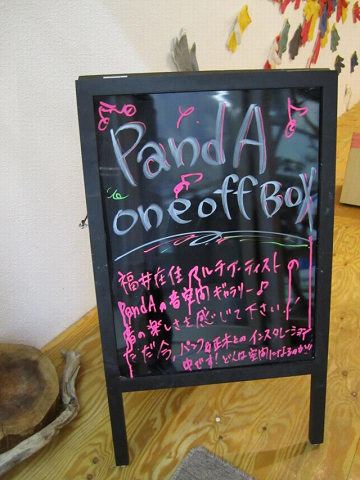 PandA
oneoffBOX
福井在住マルチアーティストの
PandAの音空間ギャラリー♪
音の楽しさを感じて下さい!
ただ今、パンク&正木とのインスタレーション
中です! どんな空間になるのか